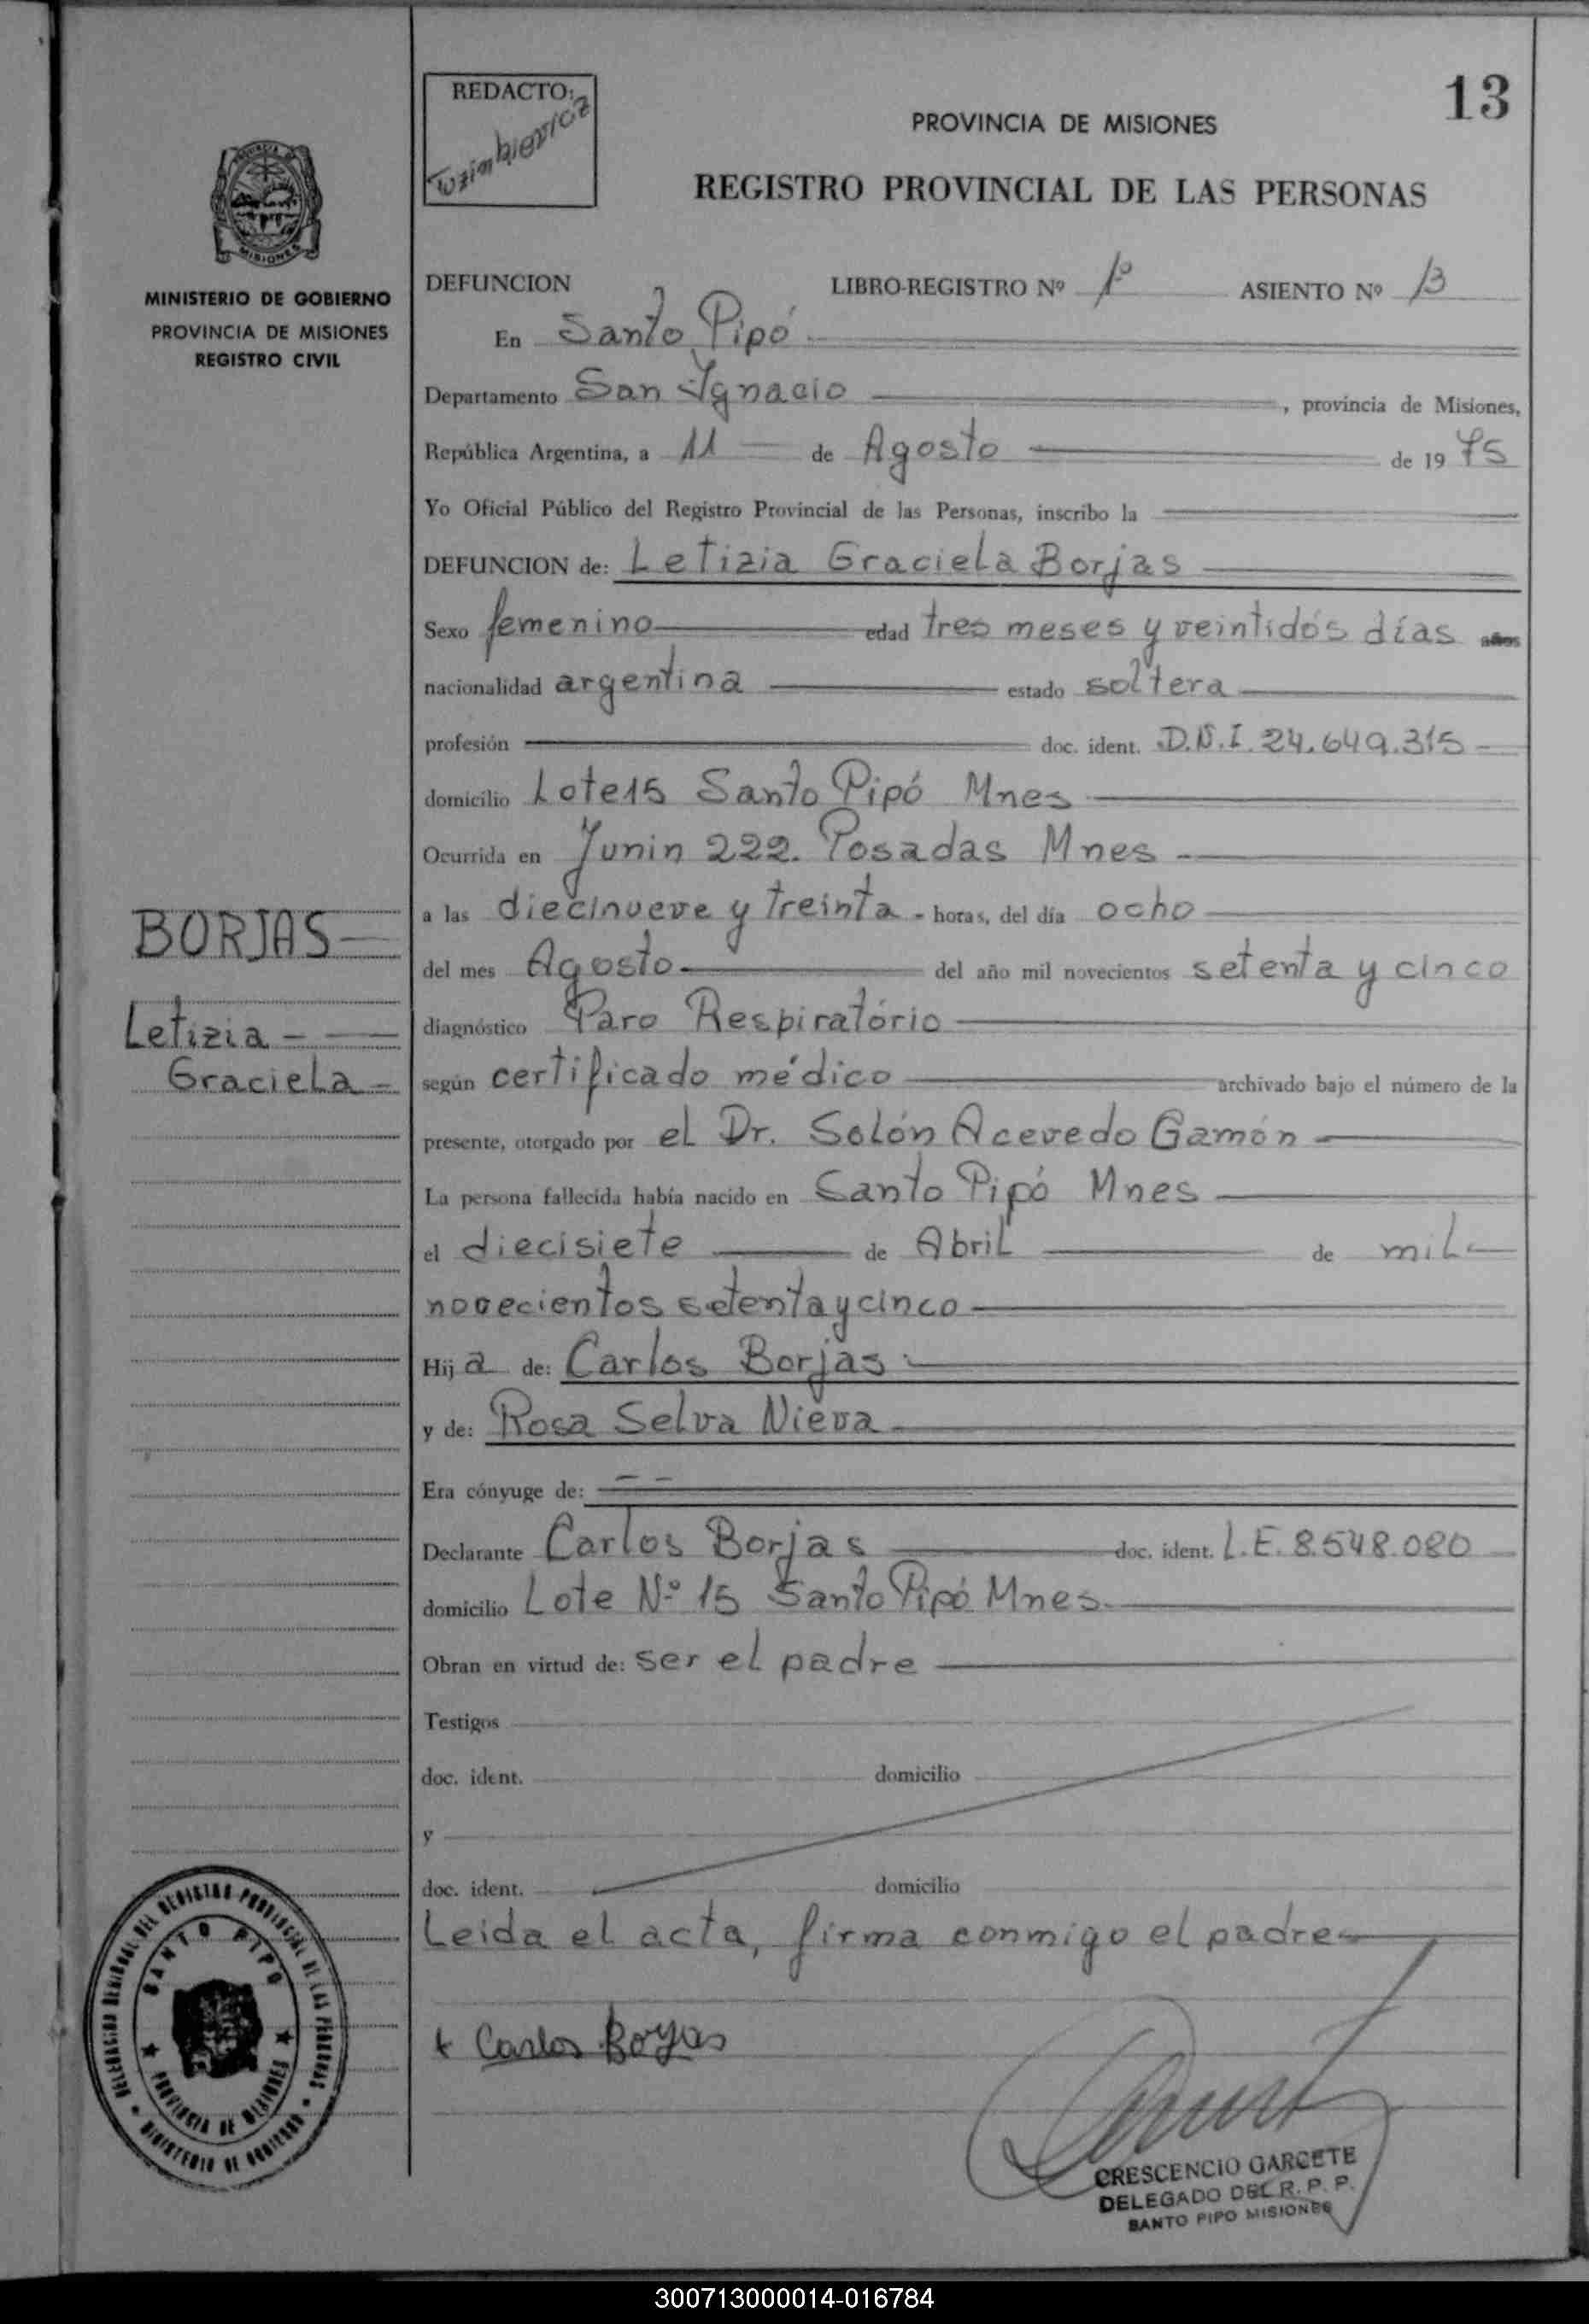 13
REDACTO:
PROVINCIA DE MISIONES
REGISTRO PROVINCIAL DE LAS PERSONAS
MISIONES
MINISTERIO DE GOBIERNO
PROVINCIA DE MISIONES
REGISTRO CIVIL
DEFUNCION LIBRO-REGISTRO Nº 1º ASIENTO Nº 13
En Santo Pipó
Departamento San Ignacio, provincia de Misiones,
República Argentina, a 11 de Agosto de 1975
Yo Oficial Público del Registro Provincial de las Personas, inscribo la
DEFUNCION de: Letizia Graciela Borjas
Sexo femenino edad tres meses y veintidós días años
nacionalidad argentina estado soltera
profesión doc. ident. D.N.I. 24.649.315
domicilio Lote 15 Santo Pipó Mnes
Ocurrida en Junin 222. Posadas Mnes
a las diecinueve y treinta - horas, del día ocho
del mes Agosto del año mil novecientos setenta y cinco
diagnóstico Paro Respiratório
según certificado médico archivado bajo el número de la
presente, otorgado por el Dr. Solón Acevedo Gamón
La persona fallecida había nacido en Santo Pipó Mnes
el diecisiete de Abril de mil
novecientos setenta y cinco
Hija de: Carlos Borjas
y de: Rosa Selva Nieva
Era cónyuge de:
Declarante Carlos Borjas doc. ident. L.E. 8.548.080
domicilio Lote Nº 15 Santo Pipó Mnes.
Obran en virtud de: ser el padre
Testigos
doc. ident. domicilio
y
doc. ident. domicilio
Leida el acta, firma conmigo el padre
BORJAS
Letizia
Graciela
DELEGACION REGIONAL DEL REGISTRO PROVINCIAL DE LAS PERSONAS
MINISTERIO DE GOBIERNO
SANTO PIPO
PROVINCIA DE MISIONES
Carlos Borjas
CRESCENCIO GARCETE
DELEGADO DEL R. P. P.
SANTO PIPO MISIONES
300713000014-016784